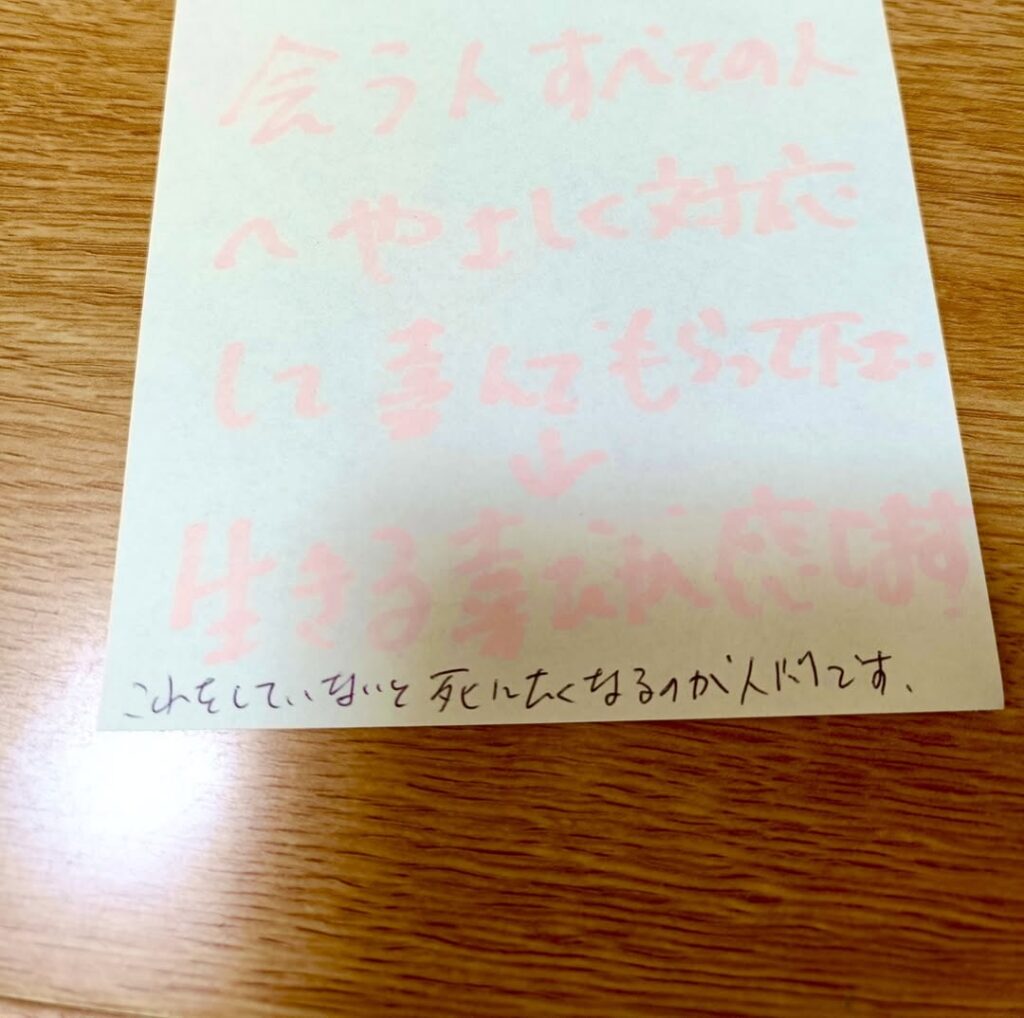 会う人すべての人
へやさしく対応
して喜んでもらって下さい.
↓
生きる喜びが感じます
これをしていないと死にたくなるのが人間です.